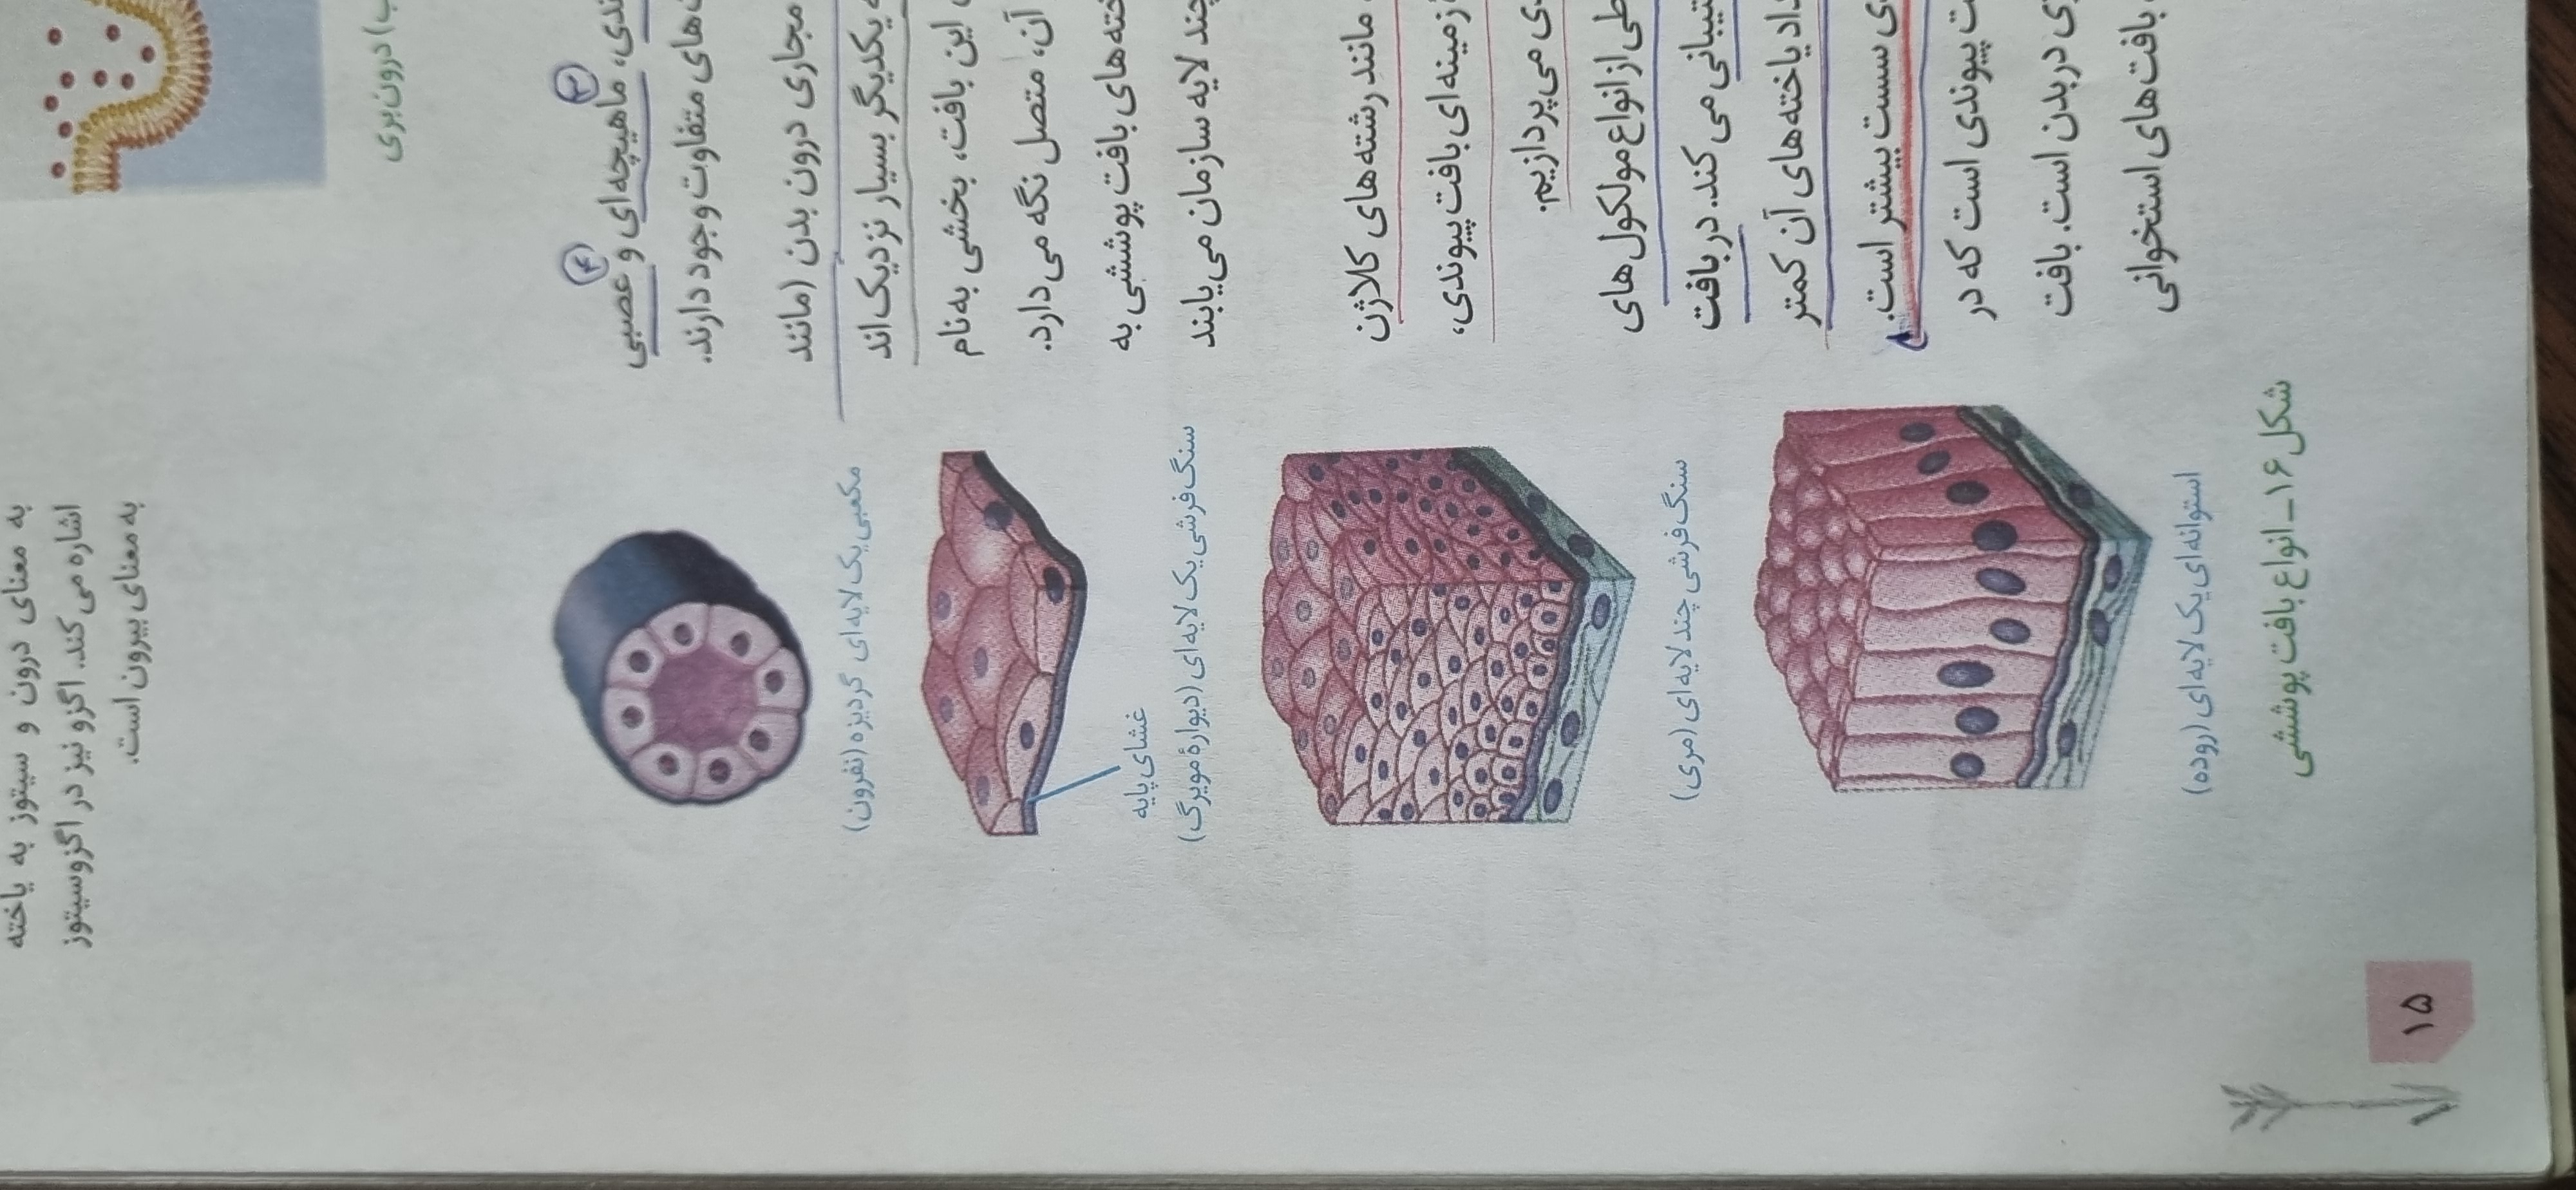 به معنای درون و سیتوز به یاخته
اشاره می‌کند. اگزو نیز در اگزوسیتوز
به معنای بیرون است.
درون‌بری
۳
۴
ماهیچه‌ای و عصبی
های متفاوت وجود دارند.
مجاری درون بدن (مانند
یکدیگر بسیار نزدیک‌اند
این بافت، بخشی به نام
آن، متصل نگه می‌دارد.
های بافت پوششی به
چند لایه سازمان می‌یابند
مانند رشته‌های کلاژن
زمینه‌ای بافت پیوندی،
می‌پردازیم.
از انواع مولکول‌های
می‌کند. در بافت
یاخته‌های آن کمتر
سست بیشتر است.
پیوندی است که در
در بدن است. بافت
بافت‌های استخوانی
مکعبی یک لایه‌ای گردیزه (نفرون)
غشای پایه
سنگ‌فرشی یک لایه‌ای (دیوارهٔ مویرگ)
سنگ‌فرشی چند لایه‌ای (مری)
استوانه‌ای یک لایه‌ای (روده)
شکل ۱۶ـ انواع بافت پوششی
۱۵